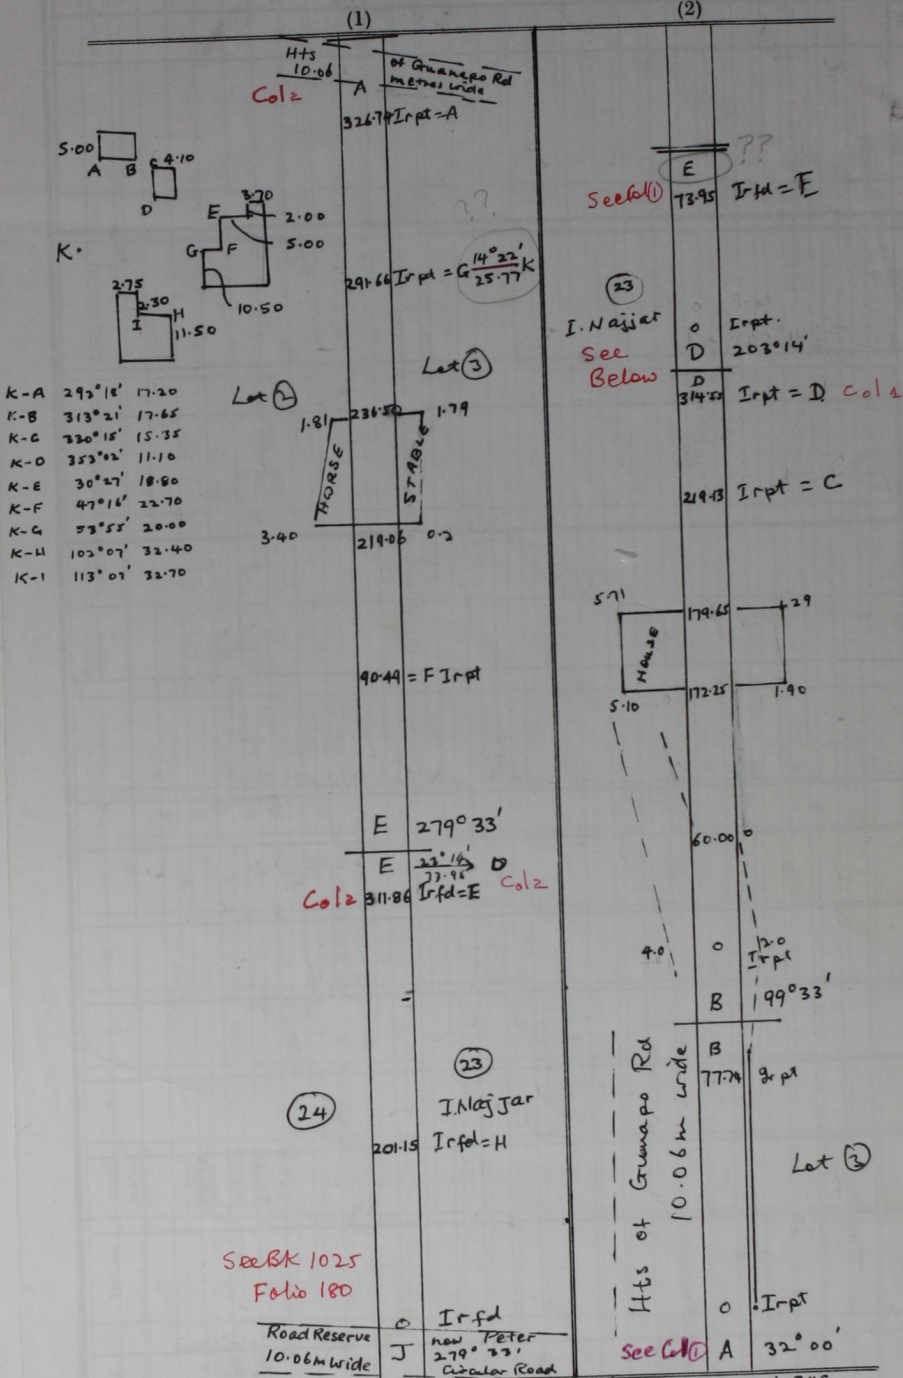 (1)
Hts of Guanapo Rd
10.06 metres wide
Col 2
A
326.74 Irpt = A
5.00
A B
C 4.10
D
3.70
E 2.00
5.00
G F
K.
10.50
2.75
2.30
H
I
11.50
??
291.66 Irpd = G 14°22' K
25.77
K-A 292°18' 17.20
K-B 313°21' 17.65
K-C 330°15' 15.35
K-D 353°02' 11.10
K-E 30°27' 18.80
K-F 47°16' 22.70
K-G 53°55' 20.00
K-H 102°07' 32.40
K-I 113°07' 32.70
Lot ②
Lot ③
1.81 236.50 1.79
HORSE STABLE
3.40 219.06 0.2
90.44 = F Irpt
E 279°33'
E 23°14' D
Col 2 311.86 Irfd = E Col 2
24
23
I. Najjar
201.15 Irfd = H
See BK 1025
Folio 180
o Irfd
Road Reserve
10.06m wide
J
now Peter
279° 33'
Circular Road
(2)
??
E
See Col ① 73.95 Irfd = E
23
I. Najjar o Irpt.
See D 203°14'
Below
D
314.55 Irpt = D Col 1
219.13 Irpt = C
5.71 179.65 29
HOUSE
5.10 172.25 1.90
60.00 o
4.0 o 2.0
Irpt
B 199°33'
B
77.74 Irpt
Hts of Guanapo Rd
10.06m wide
Lot ③
o Irpt
See Col ① A 32°00'